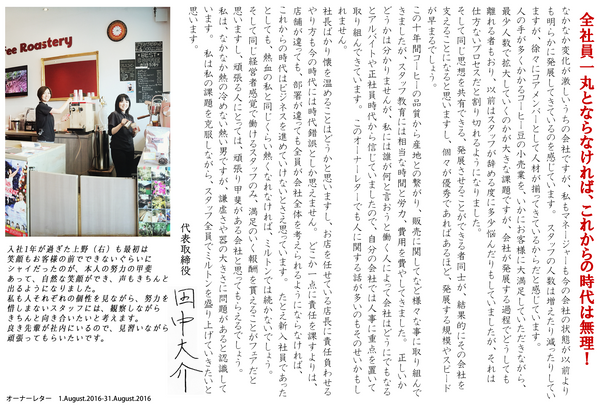 全社員一丸とならなければ、これからの時代は無理！
なかなか変化が激しいうちの会社ですが、私もマネージャーも今の会社の状態が以前より
も明らかに発展できているのを感じています。 スタッフの人数は増えたり減ったりしてい
ますが、徐々にコアメンバーとして人材が揃ってきているからだと感じています。
人の手が多くかかるコーヒー豆の小売業を、いかにお客様に大満足していただきながら、
最少人数で拡大していくのかが大きな課題ですが、会社が発展する過程でどうしても
離れる者もおり、以前はスタッフが辞める度に多少悩んだりもしていましたが、それは
仕方ないプロセスだと割り切れるようになりました。
そして同じ思想を共有できる、発展させることができる者同士が、結果的にその会社を
支えることになると思いますし、個々が優秀であればあるほど、発展する規模やスピード
が早まるでしょう。
この十年間コーヒーの品質から産地との繋がり、販売に関してなど様々な事に取り組んで
きましたが、スタッフ教育には相当な時間と労力、費用を費やしてきました。 正しいか
どうかは分かりませんが、私には誰が何と言おうと働く人によって会社はどうにでもなる
とアルバイトや正社員時代から信じていましたので、自分の会社では人事に重点を置いて
取り組んできています。 このオーナーレターでも人に関する話が多いのもそのせいかもし
れません。
社長ばかり懐を温めることはどうかと思いますし、お店を任せている店長に責任負わせる
やり方も今の時代には時代錯誤としか思えません。 どこか一点に責任を課すよりは、
店舗が違っても、部署が違っても全員が会社全体を考えられるようにならなければ、
これからの時代はビジネスを進めていけないとさえ思っています。 たとえ新入社員であった
としても、熱血の私と同じくらい熱くなれなければ、ミルトンでは続かないでしょう。
そして同じ経営者感覚で働けるスタッフのみ、満足のいく報酬を貰えることがフェアだと
思いますし、頑張る人にとっては、頑張り甲斐がある会社だと思ってもらえるでしょう。
私は、なかなか熱の冷めない熱い男ですが、謙虚さや器の大きさに問題があると認識して
います。 私は私の課題を克服しながら、スタッフ全員でミルトンを盛り上げていきたいと
思います。
代表取締役 田中大介
ee Roastery
入社1年が過ぎた上野（右）も最初は
笑顔もお客様の前でできないぐらいに
シャイだったのが、本人の努力の甲斐
あって、自然な笑顔ができ、声もきちんと
出るようになりました。
私も人それぞれの個性を見ながら、努力を
惜しまないスタッフには、観察しながら
きちんと向き合いたいと考えます。
良き先輩が社内にいるので、見習いながら
頑張ってもらいたいです。
オーナーレター 1.August.2016-31.August.2016